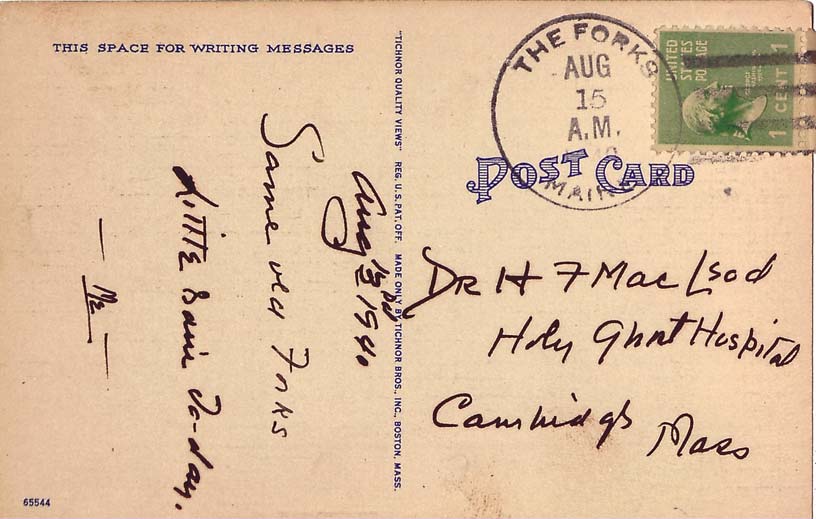 THIS SPACE FOR WRITING MESSAGES
Aug 1940
Same old Forks
Little Rain To-day.
"TICHNOR QUALITY VIEWS" REG. U.S. PAT. OFF. MADE ONLY BY TICHNOR BROS., INC., BOSTON, MASS.
THE FORKS
AUG
15
A.M.
MAINE
UNITED
STATES
POSTAGE
1 CENT 1
POST CARD
DR H F MacLeod
Holy Ghost Hospital
Cambridge
Mass
65544